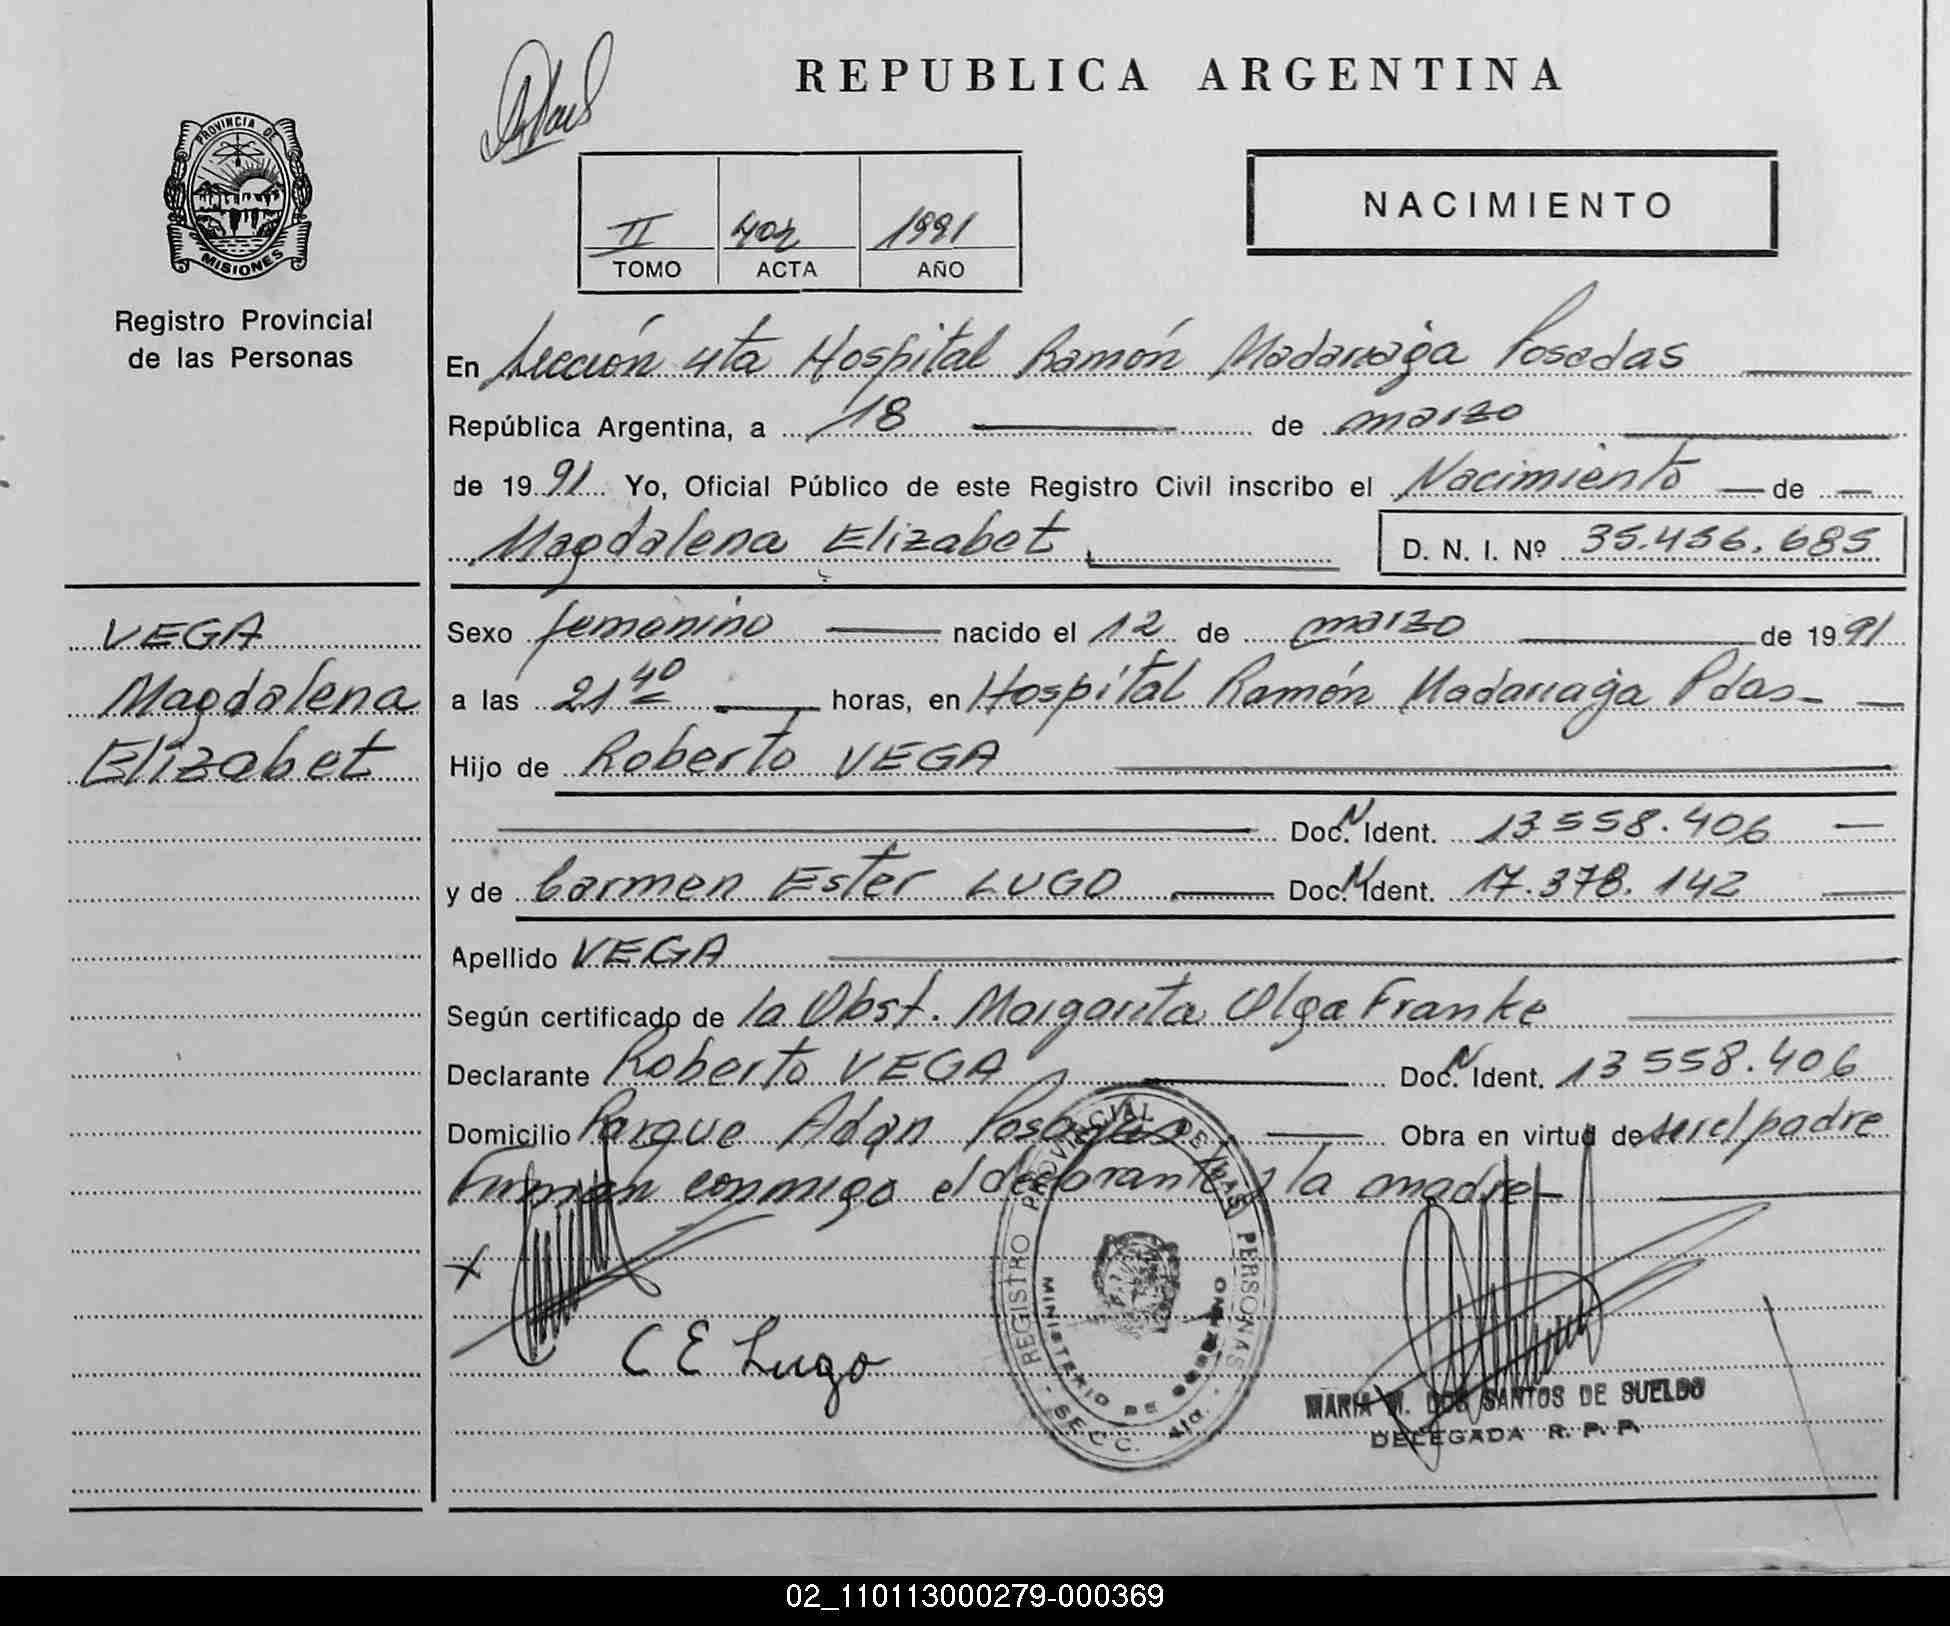 REPUBLICA ARGENTINA
PROVINCIA DE
MISIONES
Registro Provincial
de las Personas
NACIMIENTO
II 402 1991
TOMO ACTA AÑO
En Sección 4ta Hospital Ramón Madariaga Posadas
República Argentina, a 18 de marzo
de 1991 Yo, Oficial Público de este Registro Civil inscribo el Nacimiento de
Magdalena Elizabet D. N. I. Nº 35.456.685
VEGA
Magdalena
Elizabet
Sexo femenino nacido el 12 de marzo de 1991
a las 21 40 horas, en Hospital Ramón Madariaga Pdas
Hijo de Roberto VEGA
Doc. N Ident. 13.558.406
y de Carmen Ester LUGO Doc. N Ident. 17.378.142
Apellido VEGA
Según certificado de la Obst. Margarita Olga Franke
Declarante Roberto VEGA Doc. N Ident. 13558.406
Domicilio Parque Adan Posadas Obra en virtud de ser el padre
Firman conmigo el declarante y la madre
X
C E Lugo
REGISTRO PROVINCIAL DE LAS PERSONAS
MINISTERIO DE GOBIERNO
- SECC. 4ta. -
MARIA W. DOS SANTOS DE SUELDO
DELEGADA R. P. P.
02_110113000279-000369